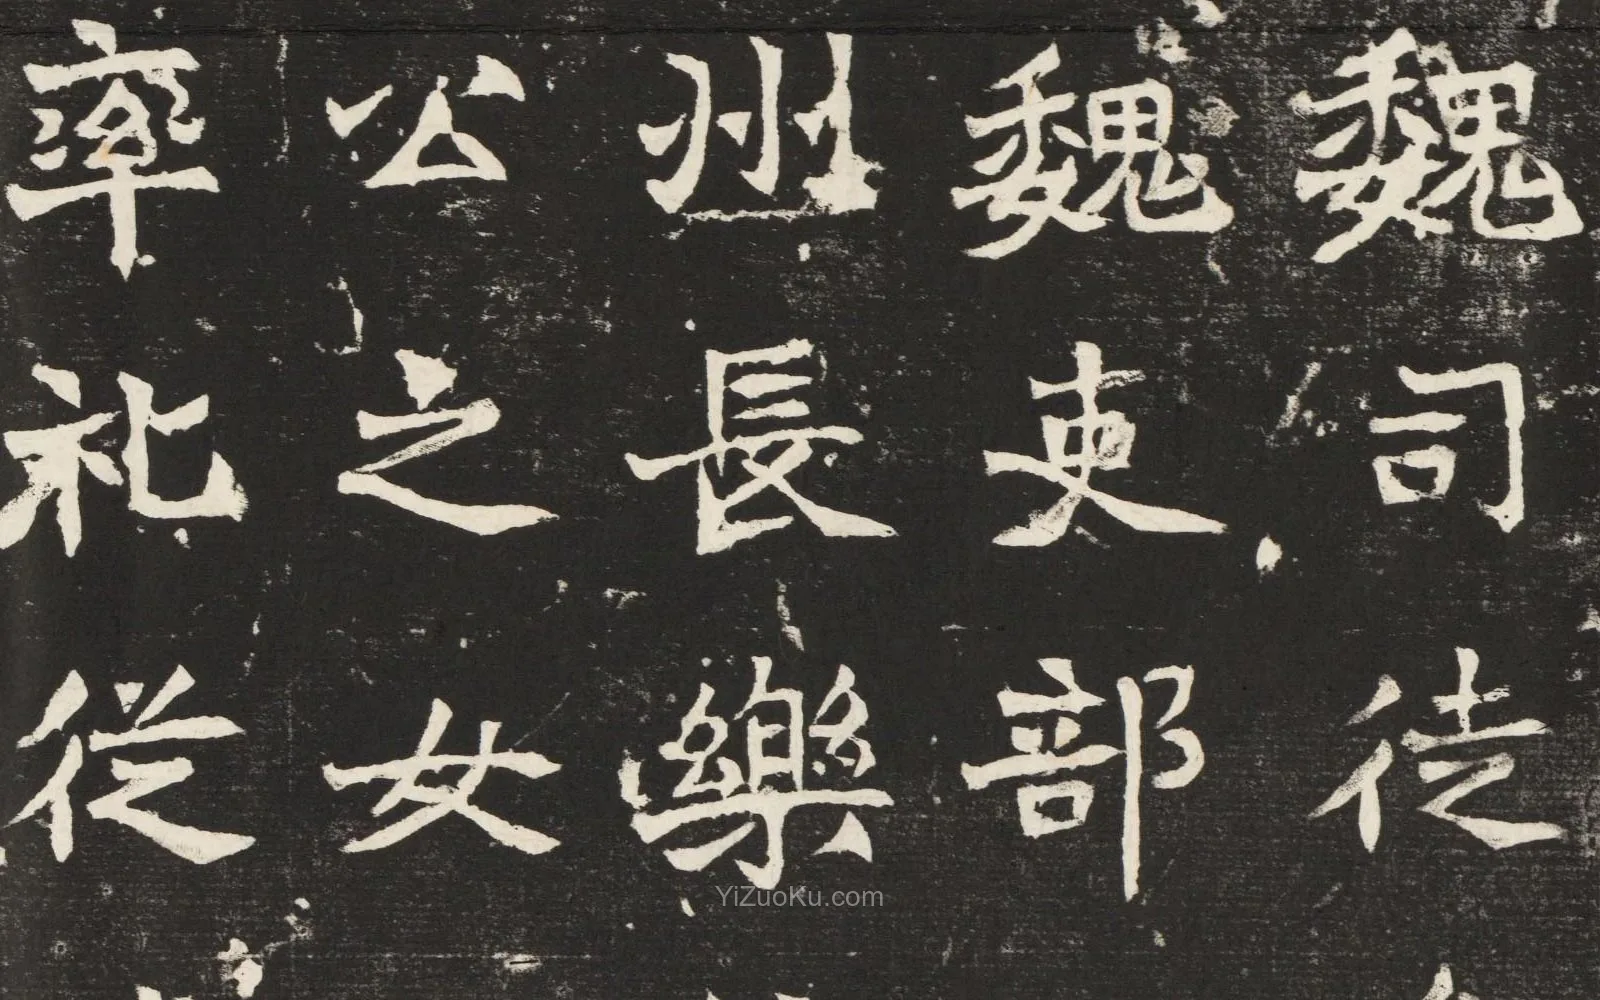 魏司徒
魏吏部
州長樂
公之女
率礼従
YiZuoKu.com